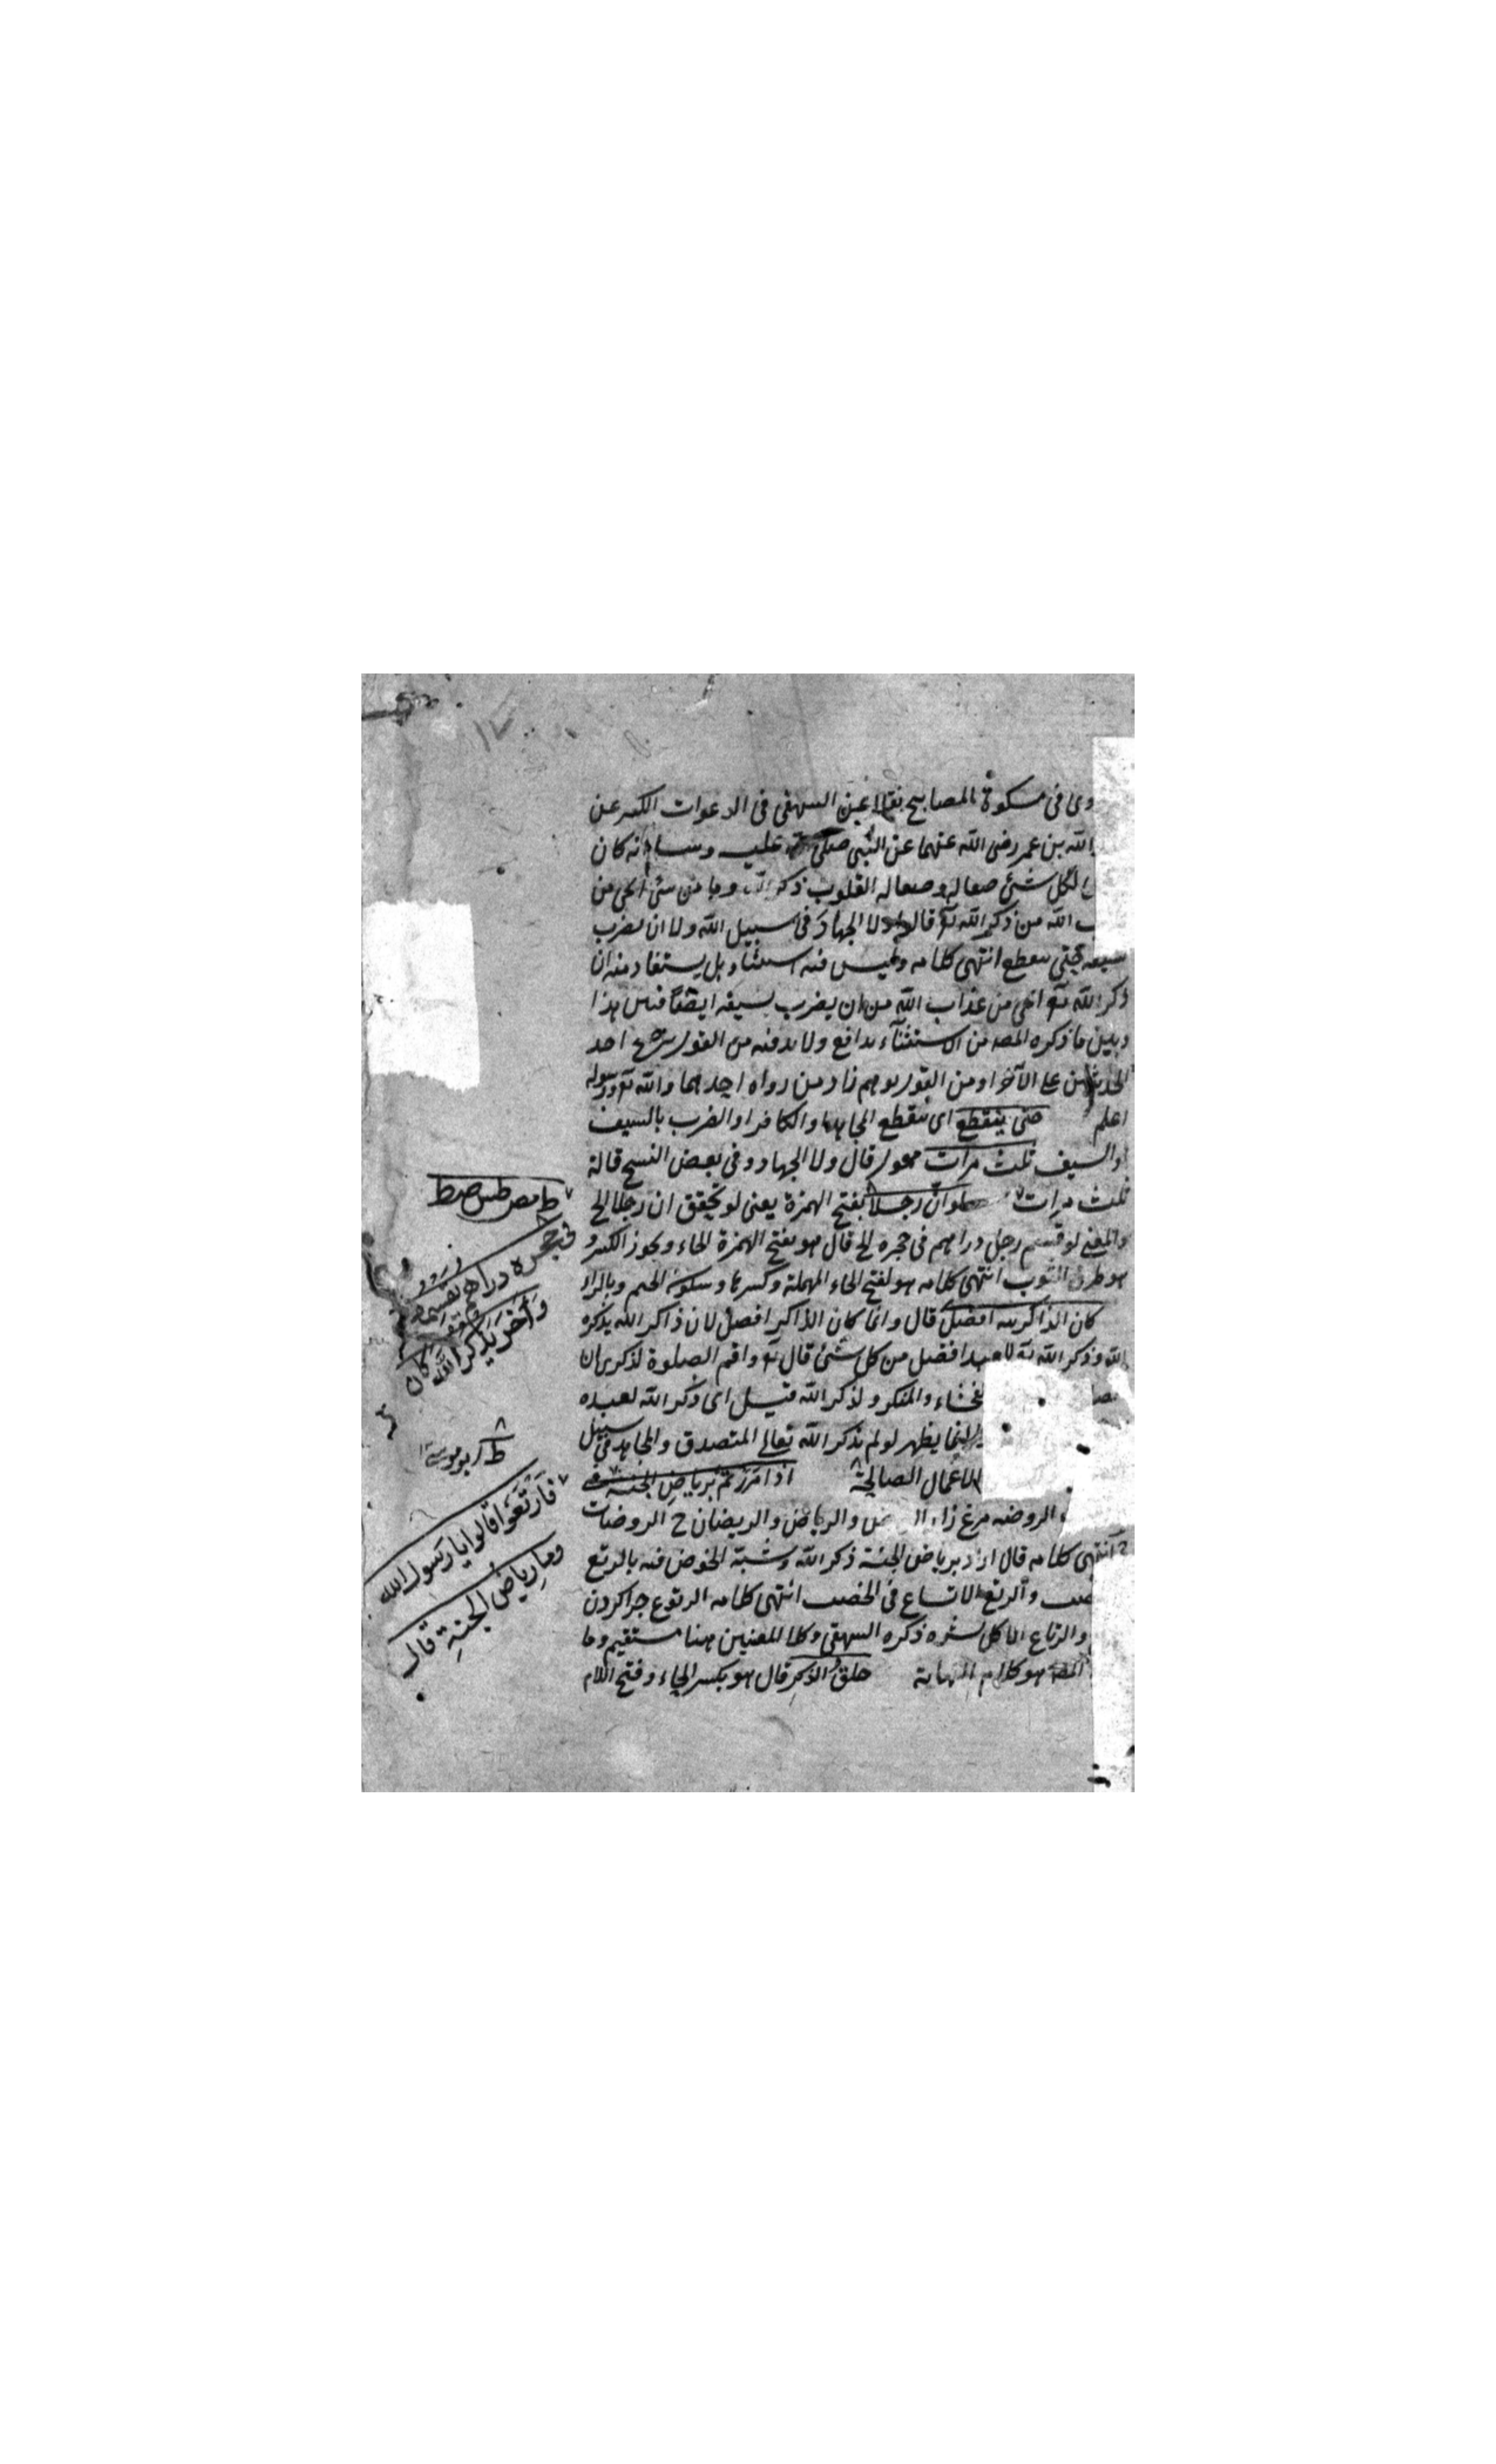 وى فى مسكوة المصابيح نقلا عن البيهقى فى الدعوات الكبير عن
الله بن عمر رضى الله عنهما عن النبى صلى عليه وسلم انه كان
لكل شئ صقالة وصقالة القلوب ذكر الله وما من شئ انجى من
الله من ذكر الله قالوا ولا الجهاد فى سبيل الله ولا ان يضرب
بسيفه حتى ينقطع انتهى كلامه وليس فيه استثناء بل يستفاد منه ان
ذكر الله انجى من عذاب الله من ان يضرب بسيفه ايضا فبين هذا
وبين ما ذكره المص من الاستثناء تدافع ولا بد فيه من القول احد
الحديثين على الآخر او من القول بوهم من رواه احدهما والله ورسوله
اعلم حتى ينقطع اى ينقطع المجاهد والكافر او الضرب بالسيف
او السيف ثلث مرات قال ولا الجهاد وفى بعض النسخ قاله
ثلث مرات لو ان رجلا بفتح الهمزة يعنى لو تحقق ان رجلا الخ
والمعنى لو قسم رجل دراهم فى حجره الخ قال هو بفتح الهمزة الحاء ويجوز الكسر و
هو طرف الثوب انتهى كلامه هو بفتح الحاء المهملة وكسرها وسكون الجيم وبالراء
كان الذاكر لله افضل قال وانما كان الذاكر افضل لان ذاكر الله يذكره
الله وذكر الله للعبد افضل من كل شئ قال واقم الصلوة لذكرى ان
لفحشاء والمنكر ولذكر الله قيل اى ذكر الله لعبده
انما يظهر لو لم يذكر الله تعالى المتصدق والمجاهد فى سبيل
الاعمال الصالحة اذا مررتم برياض الجنة
الروضه مرغ زار والرياض والريضان ج الروضات
انتهى كلامه قال اراد برياض الجنة ذكر الله وشبه الخوض فيه بالرتع
خصب والرتع الاتساع فى الخصب انتهى كلامه الرتوع چرا كردن
والرتاع الاكل بشره ذكره البيهقى وكلا المعنيين هنا مستقيم وما
المص هو كلام النهاية حلق الذكر قال هو بكسر الحاء وفتح اللام
ط مص طس صط
فى حجره دراهم يقسمها
وآخر يذكر الله كان
ط ابو موسى
فارتعوا قالوا يا رسول الله
وما رياض الجنة قال